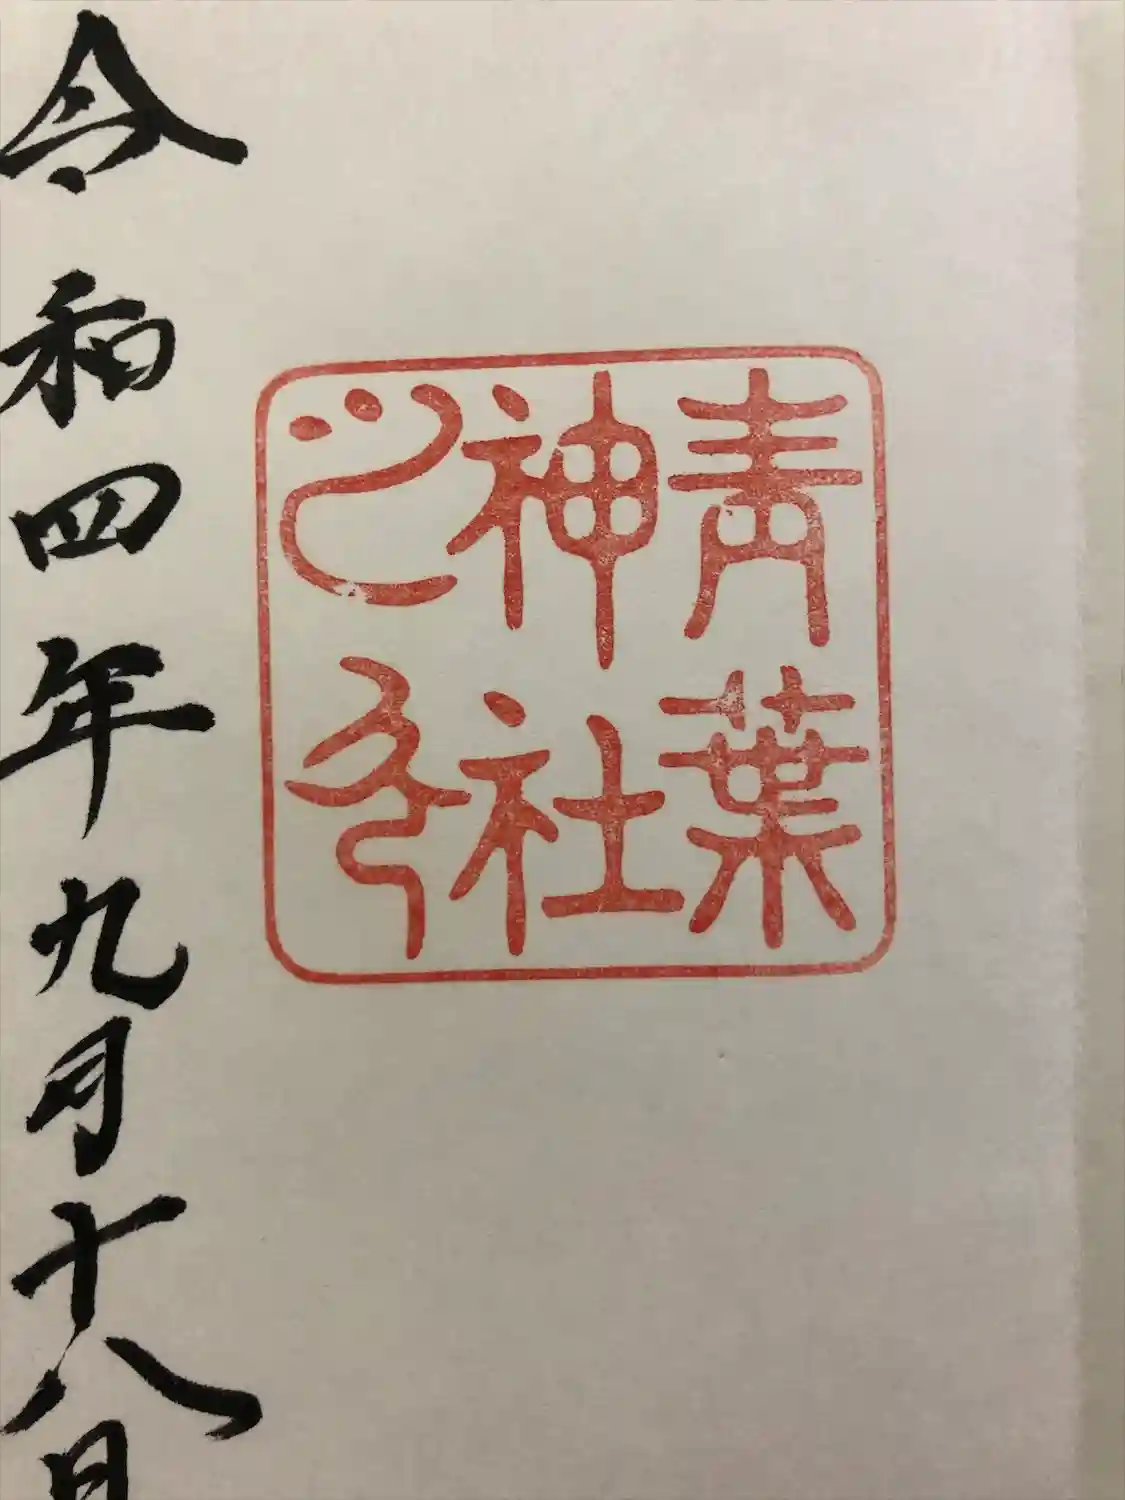 青葉
神社
之印
令和四年九月十八日